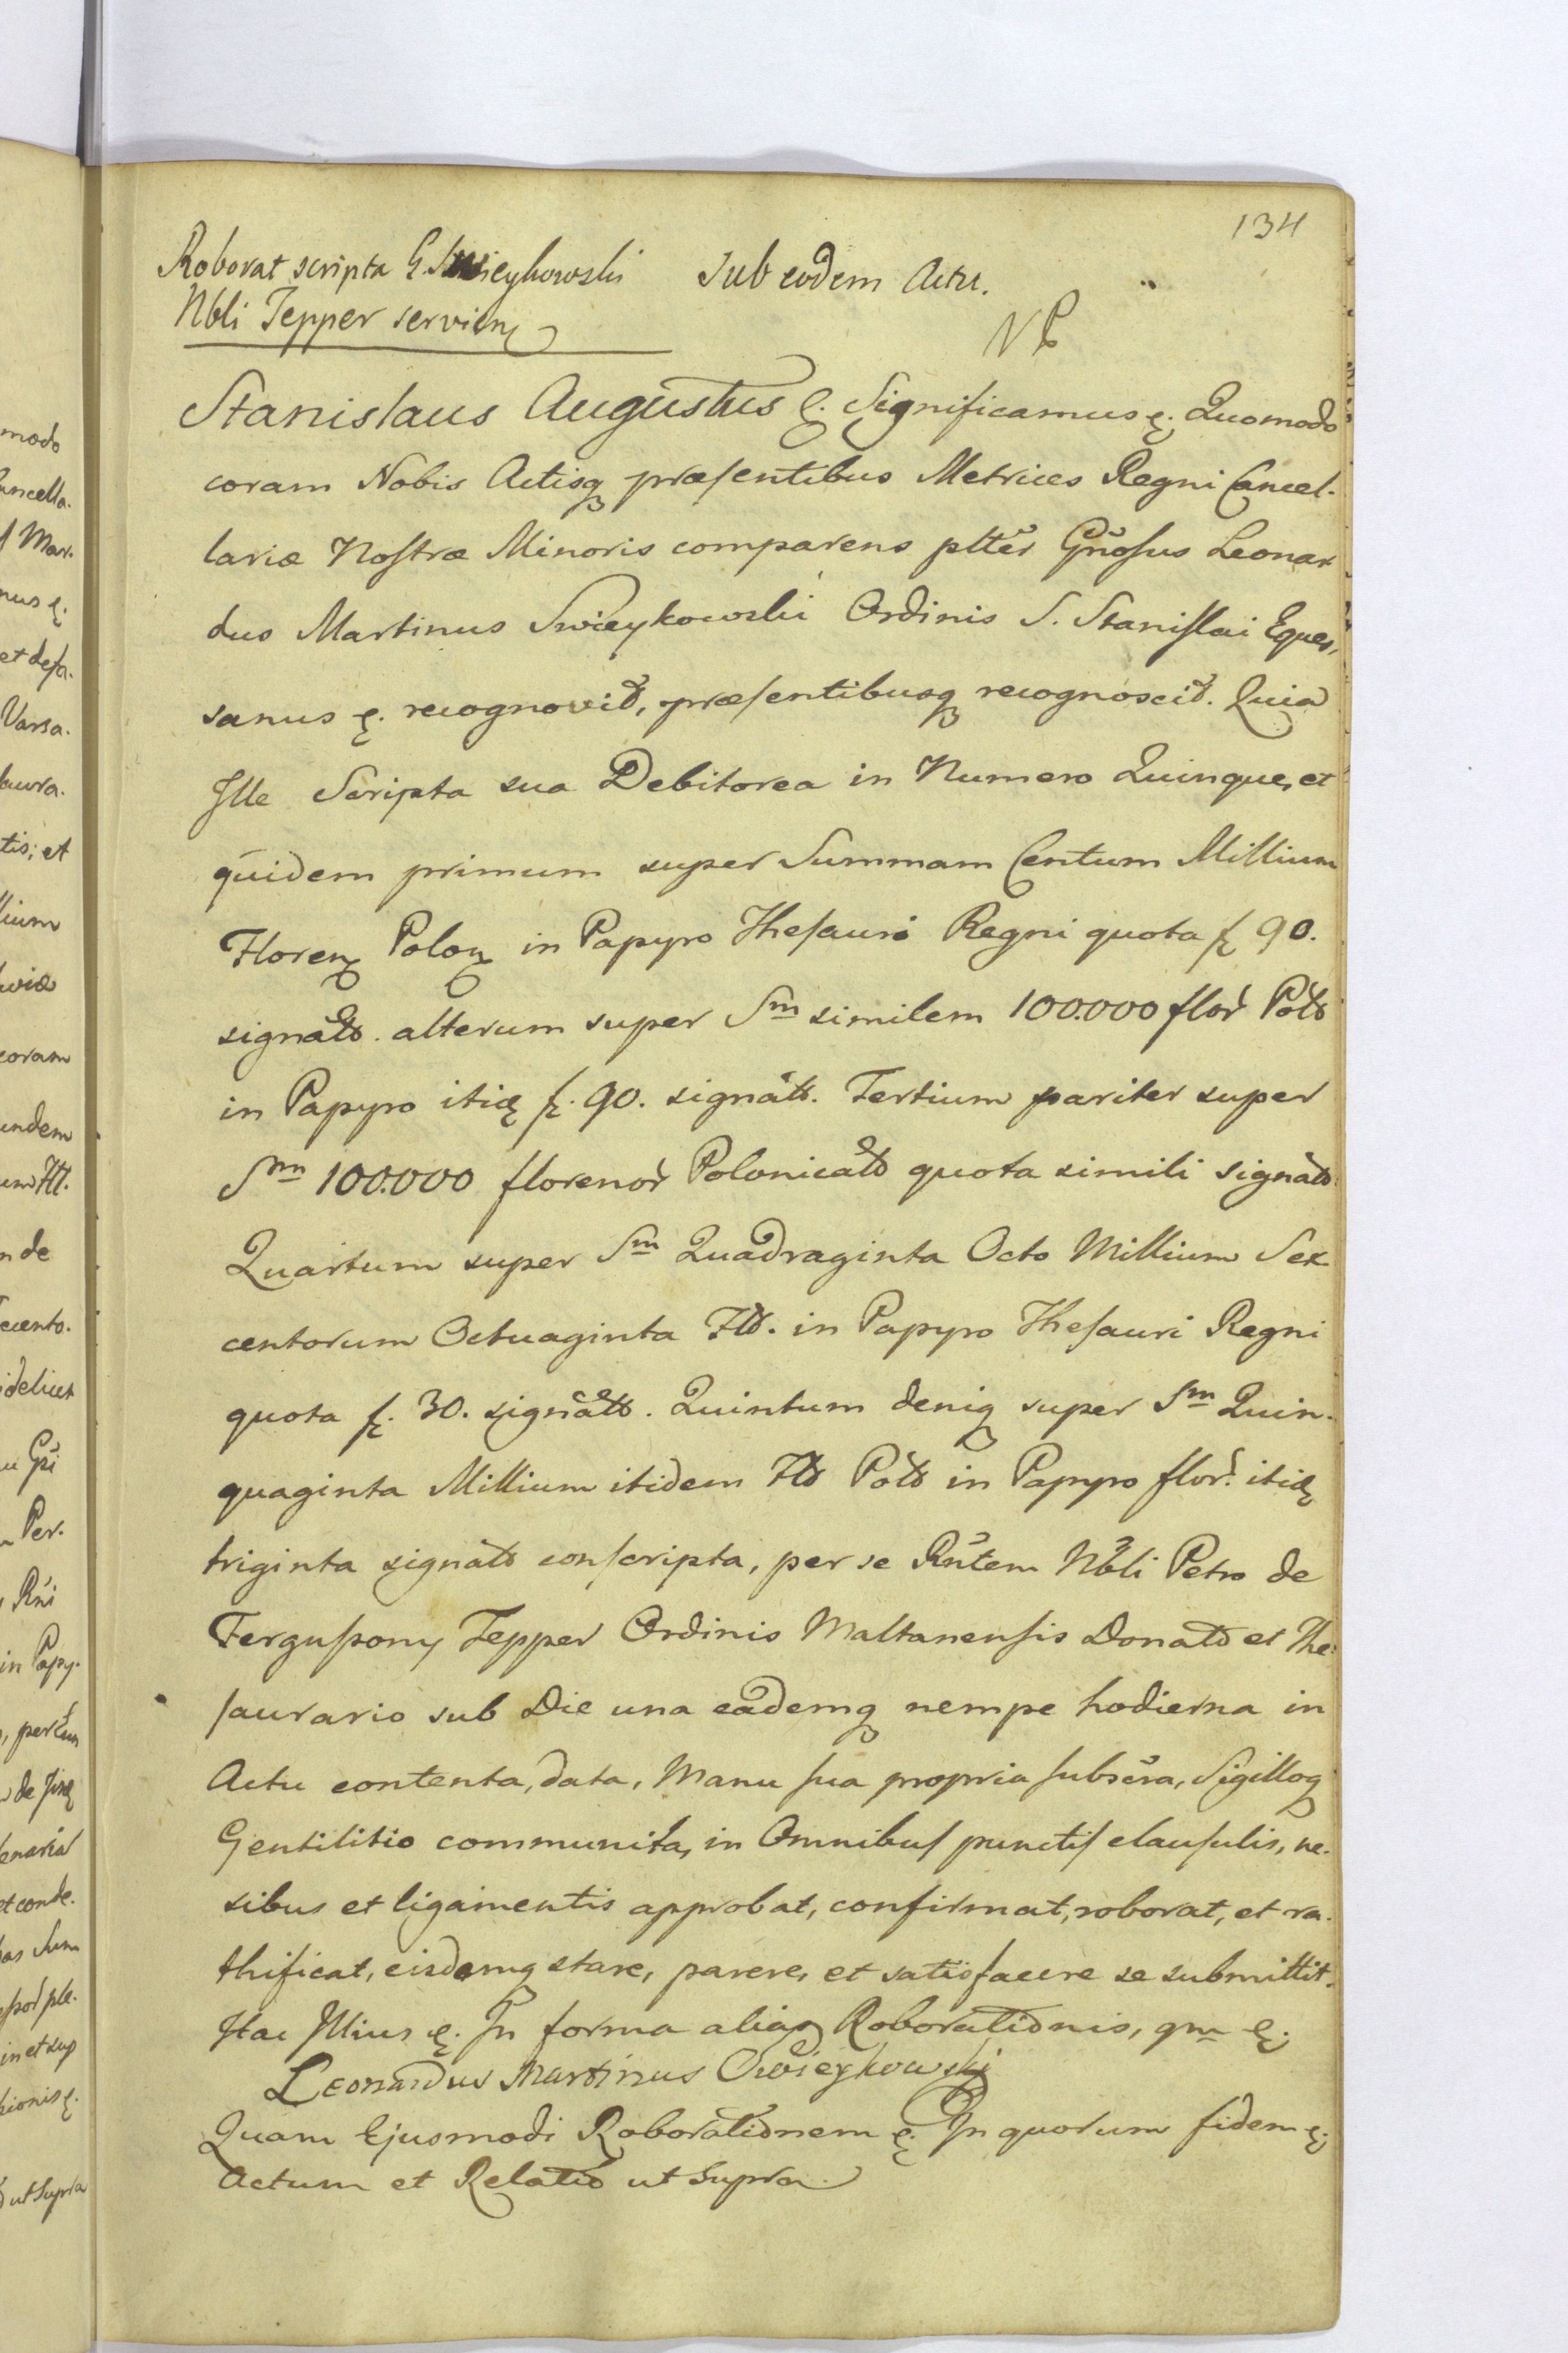 134
Roborat scripta G. Swieykowski
Nbli Tepper servien
Sub eodem Actu.
NP
Stanislaus Augustus &. Significamus &. Quomodo
coram Nobis Actisq præsentibus Metrices Regni Cancel-
lariæ Nostræ Minoris comparens plter Gnosus Leonar
dus Martinus Swieykowski Ordinis S. Stanislai Eques,
sanus &. recognovit, præsentibusq recognoscit. Quia
Ille Scripta sua Debitorea in Numero Quinque, et
quidem primum super Summam Centum Millium
Floren Polon in Papyro Thesauri Regni quota f 90.
signato. alterum super Sm similem 100.000 flor Pol
in Papyro itid f. 90. signato. Tertium pariter super
Sm 100.000 florenor Polonical quota simili signato.
Quartum super Sm Quadraginta Octo Millium Sex
centorum Octuaginta Fl. in Papyro Thesauri Regni
quota f. 30. signato. Quintum deniq super Sm Quin-
quaginta Millium itidem Fl Pol in Papyro flor. itid
triginta signato conscripta, per se Rntem Nbli Petro de
Fergussony Tepper Ordinis Maltanensis Donato et The-
saurario sub Die una eademq nempe hodierna in
Actu contenta, data, Manu sua propria subscra, Sigilloq
Gentilitio communita, in Omnibus punctis clausulis, ne-
xibus et ligamentis approbat, confirmat, roborat, et ra-
thificat, eisdemq stare, parere, et satisfacere se submittit.
Hac Illius &. In forma alias Roborationis, qm &.
Leonardus Martinus Swieykowski
Quam Ejusmodi Roborationem &. In quorum fidem &.
Actum et Relatio ut supra.